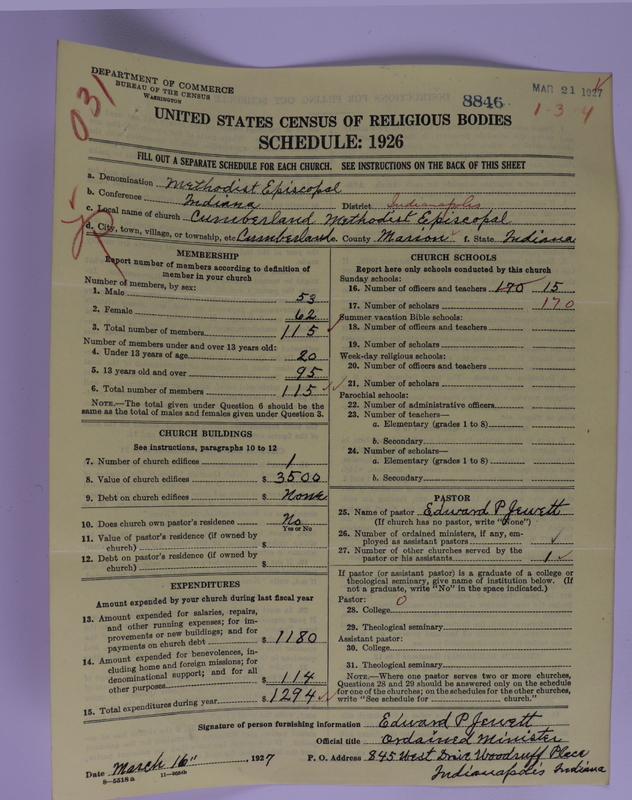 DEPARTMENT OF COMMERCE
BUREAU OF THE CENSUS
WASHINGTON
031
8846
MAR 21 1927
1-3-4
UNITED STATES CENSUS OF RELIGIOUS BODIES
SCHEDULE: 1926
FILL OUT A SEPARATE SCHEDULE FOR EACH CHURCH. SEE INSTRUCTIONS ON THE BACK OF THIS SHEET
a. Denomination Methodist Episcopal
b. Conference Indiana District Indianapolis
c. Local name of church Cumberland Methodist Episcopal
d. City, town, village, or township, etc. Cumberland e. County Marion f. State Indiana
MEMBERSHIP
Report number of members according to definition of
member in your church
Number of members, by sex:
1. Male 53
2. Female 62
3. Total number of members 115
Number of members under and over 13 years old:
4. Under 13 years of age 20
5. 13 years old and over 95
6. Total number of members 115
NOTE.—The total given under Question 6 should be the
same as the total of males and females given under Question 3.
CHURCH BUILDINGS
See instructions, paragraphs 10 to 12
7. Number of church edifices 1
8. Value of church edifices $ 3500
9. Debt on church edifices $ None
10. Does church own pastor's residence No
Yes or No
11. Value of pastor's residence (if owned by
church) $
12. Debt on pastor's residence (if owned by
church) $
EXPENDITURES
Amount expended by your church during last fiscal year
13. Amount expended for salaries, repairs,
and other running expenses; for im-
provements or new buildings; and for
payments on church debt $ 1180
14. Amount expended for benevolences, in-
cluding home and foreign missions; for
denominational support; and for all
other purposes $ 114
15. Total expenditures during year $ 1294
CHURCH SCHOOLS
Report here only schools conducted by this church
Sunday schools:
16. Number of officers and teachers 170 15
17. Number of scholars 170
Summer vacation Bible schools:
18. Number of officers and teachers
19. Number of scholars
Week-day religious schools:
20. Number of officers and teachers
21. Number of scholars
Parochial schools:
22. Number of administrative officers
23. Number of teachers—
a. Elementary (grades 1 to 8)
b. Secondary
24. Number of scholars—
a. Elementary (grades 1 to 8)
b. Secondary
PASTOR
25. Name of pastor Edward P Jewett
(If church has no pastor, write "None")
26. Number of ordained ministers, if any, em-
ployed as assistant pastors
27. Number of other churches served by the
pastor or his assistants 1
If pastor (or assistant pastor) is a graduate of a college or
theological seminary, give name of institution below. (If
not a graduate, write "No" in the space indicated.)
Pastor: 0
28. College
29. Theological seminary
Assistant pastor:
30. College
31. Theological seminary
NOTE.—Where one pastor serves two or more churches,
Questions 28 and 29 should be answered only on the schedule
for one of the churches; on the schedules for the other churches,
write "See schedule for church."
Signature of person furnishing information Edward P Jewett
Official title Ordained Minister
Date March 16" , 1927 P. O. Address 845 West Drive Woodruff Place
8-5518a 11-9034b Indianapolis Indiana